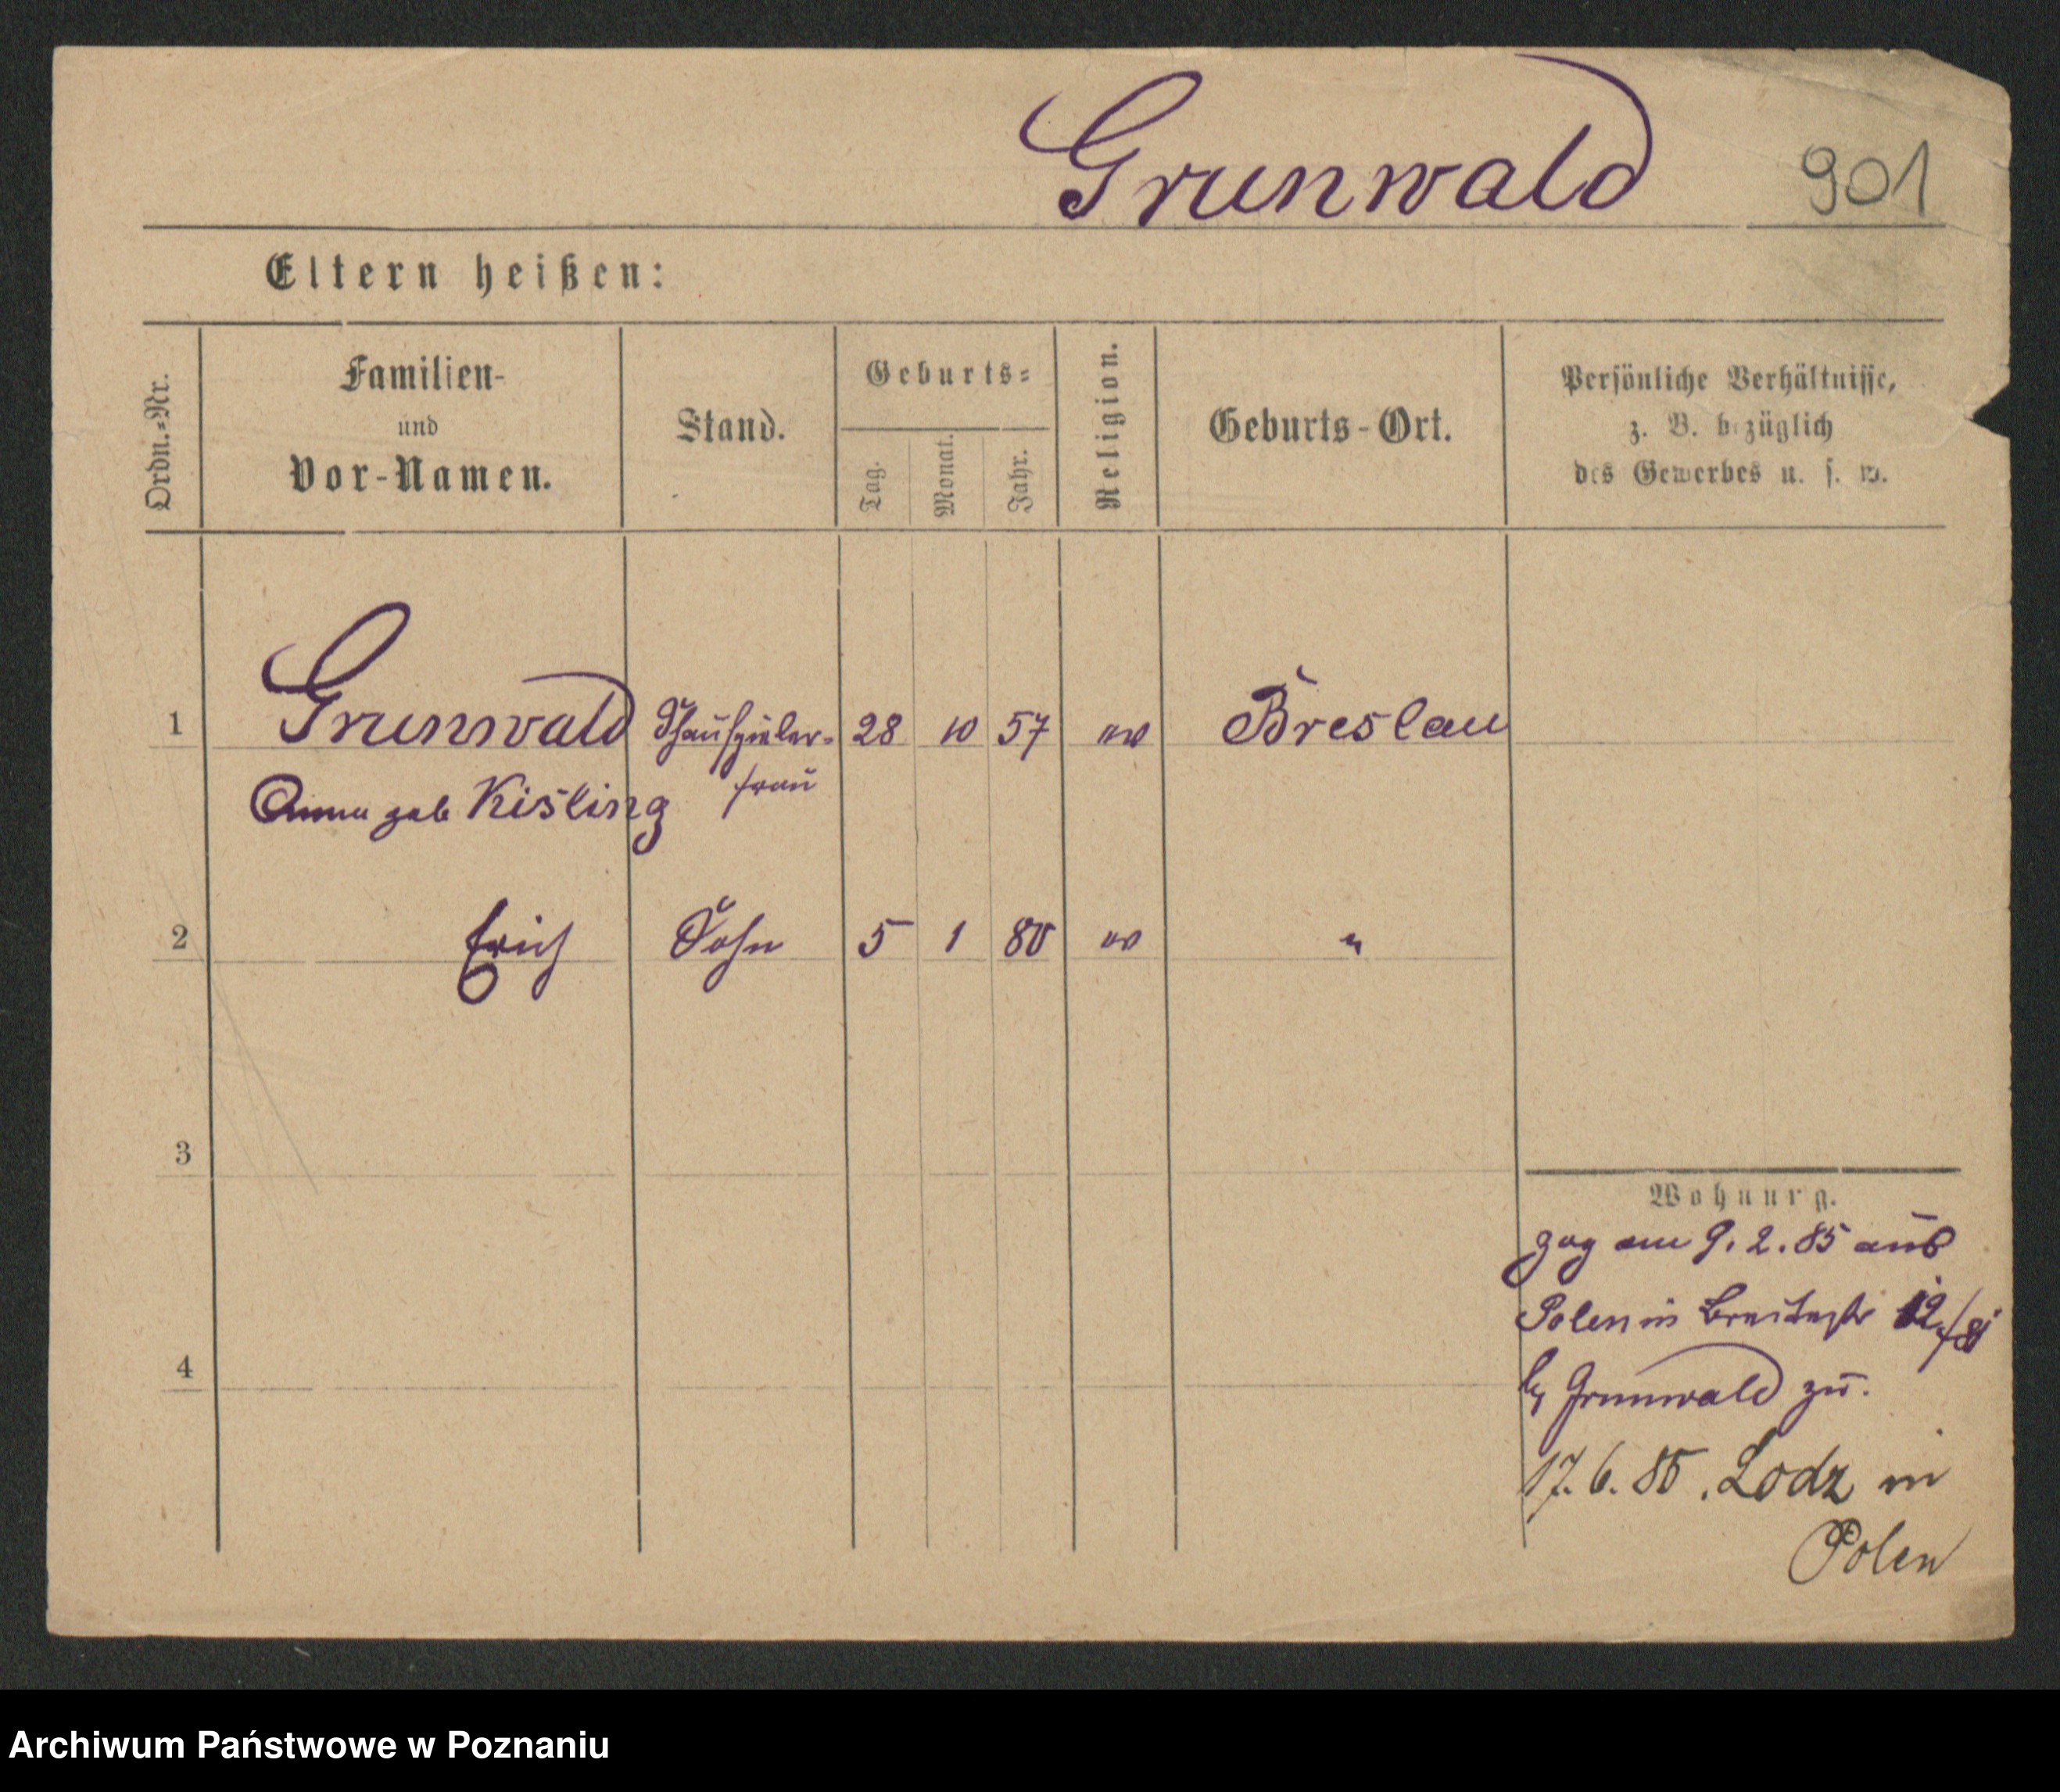 Grunwald 901
Eltern heißen:
Ordn.-Nr.
Familien-
und
Vor-Namen.
Stand.
Geburts-
Tag.
Monat.
Jahr.
Religion.
Geburts-Ort.
Persönliche Verhältnisse,
z. B. bezüglich
des Gewerbes u. s. w.
1 Grunwald Schauspieler- 28 10 57 ev Breslau
Anna geb Kisling frau
2 Erich Sohn 5 1 80 ev "
3
4
Wohnung.
zog am 9. 2. 85 aus
Polen in Breitestr 12/
by Grunwald zu.
17. 6. 85. Lodz in
Polen
Archiwum Państwowe w Poznaniu